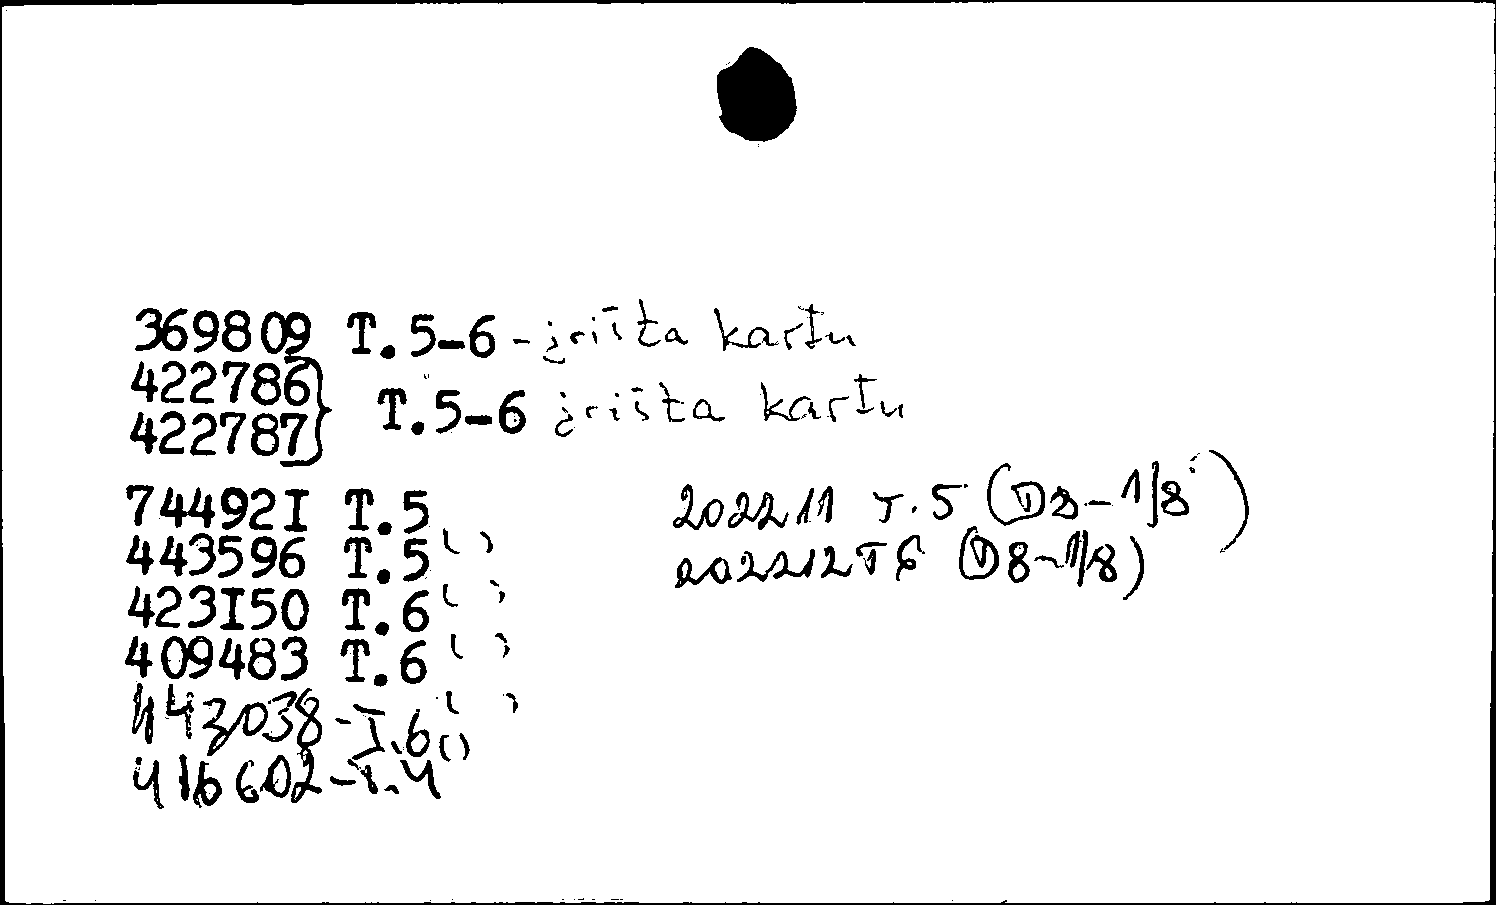 369809 T.5-6 - įrišta kartu
422786
422787 } T.5-6 įrišta kartu
744921 T.5
443596 T.5 ( )
423I50 T.6 ( )
409483 T.6 ( )
443038-T.6 ( )
416602-T.4 ( )
202211 T.5 (D8-1/8)
202212 T 6 (D8-1/8)